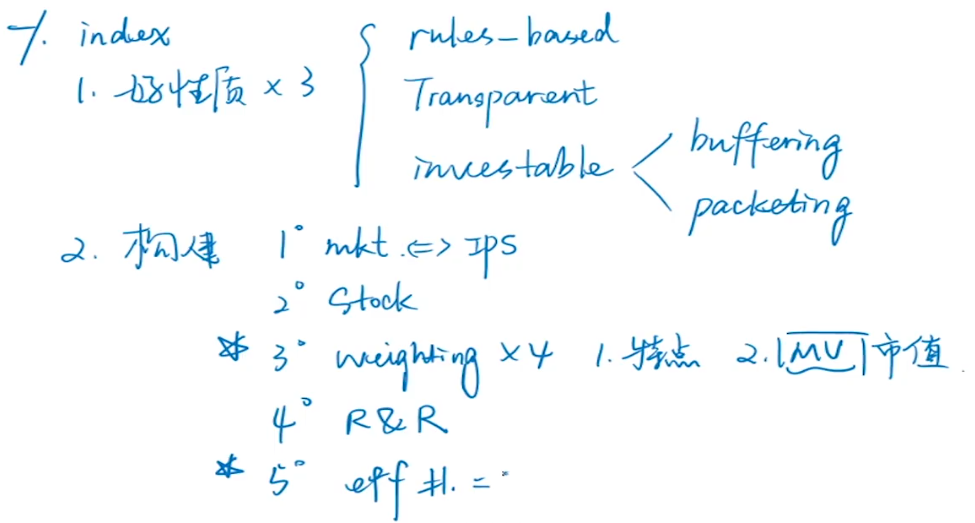 一. index
1. 好性质 × 3 { rules-based
Transparent
investable < buffering
packeting
2. 构建 1° mkt. <=> IPS
2° Stock
* 3° weighting ×4 1. 特点 2. |MV| 市值
4° R&R
* 5° eff #. =